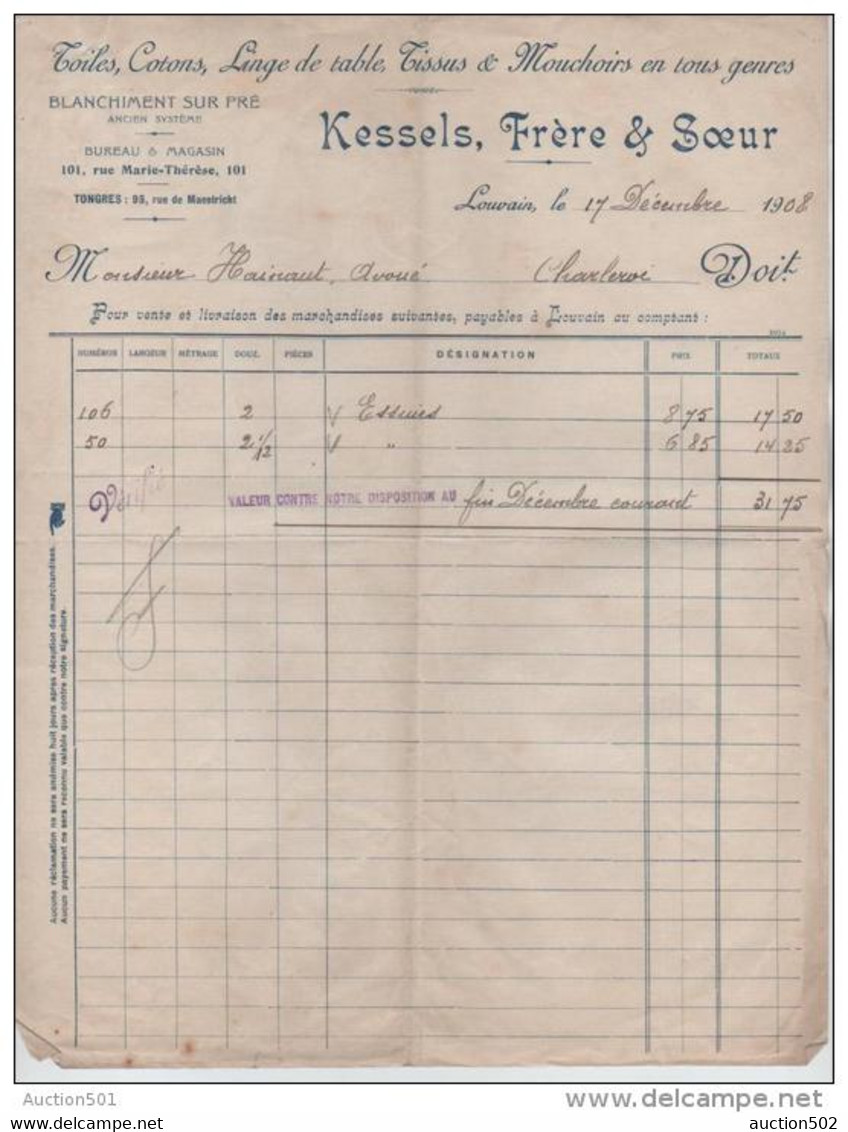 Toiles, Cotons, Linge de table, Tissus & Mouchoirs en tous genres
BLANCHIMENT SUR PRÉ
ANCIEN SYSTÈME
BUREAU & MAGASIN
101, rue Marie-Thérèse, 101
TONGRES : 93, rue de Maestricht
Kessels, Frère & Sœur
Louvain, le 17 Décembre 1908
Monsieur Hainaut, avoué Charleroi Doit
Pour vente et livraison des marchandises suivantes, payables à Louvain au comptant :
NUMÉROS LARGEUR MÉTRAGE DOUZ. PIÈCES DÉSIGNATION PRIX TOTAUX
106 2 V Essuies 8 75 17 50
50 2 1/12 V " 6 85 14 25
Vérifié VALEUR CONTRE NOTRE DISPOSITION AU fin Décembre courant 31 75
Aucune réclamation ne sera admise huit jours après réception des marchandises.
Aucun payement ne sera reconnu valable que contre notre signature.
Auction501
delcampe.net
www.delcampe.net
auction502